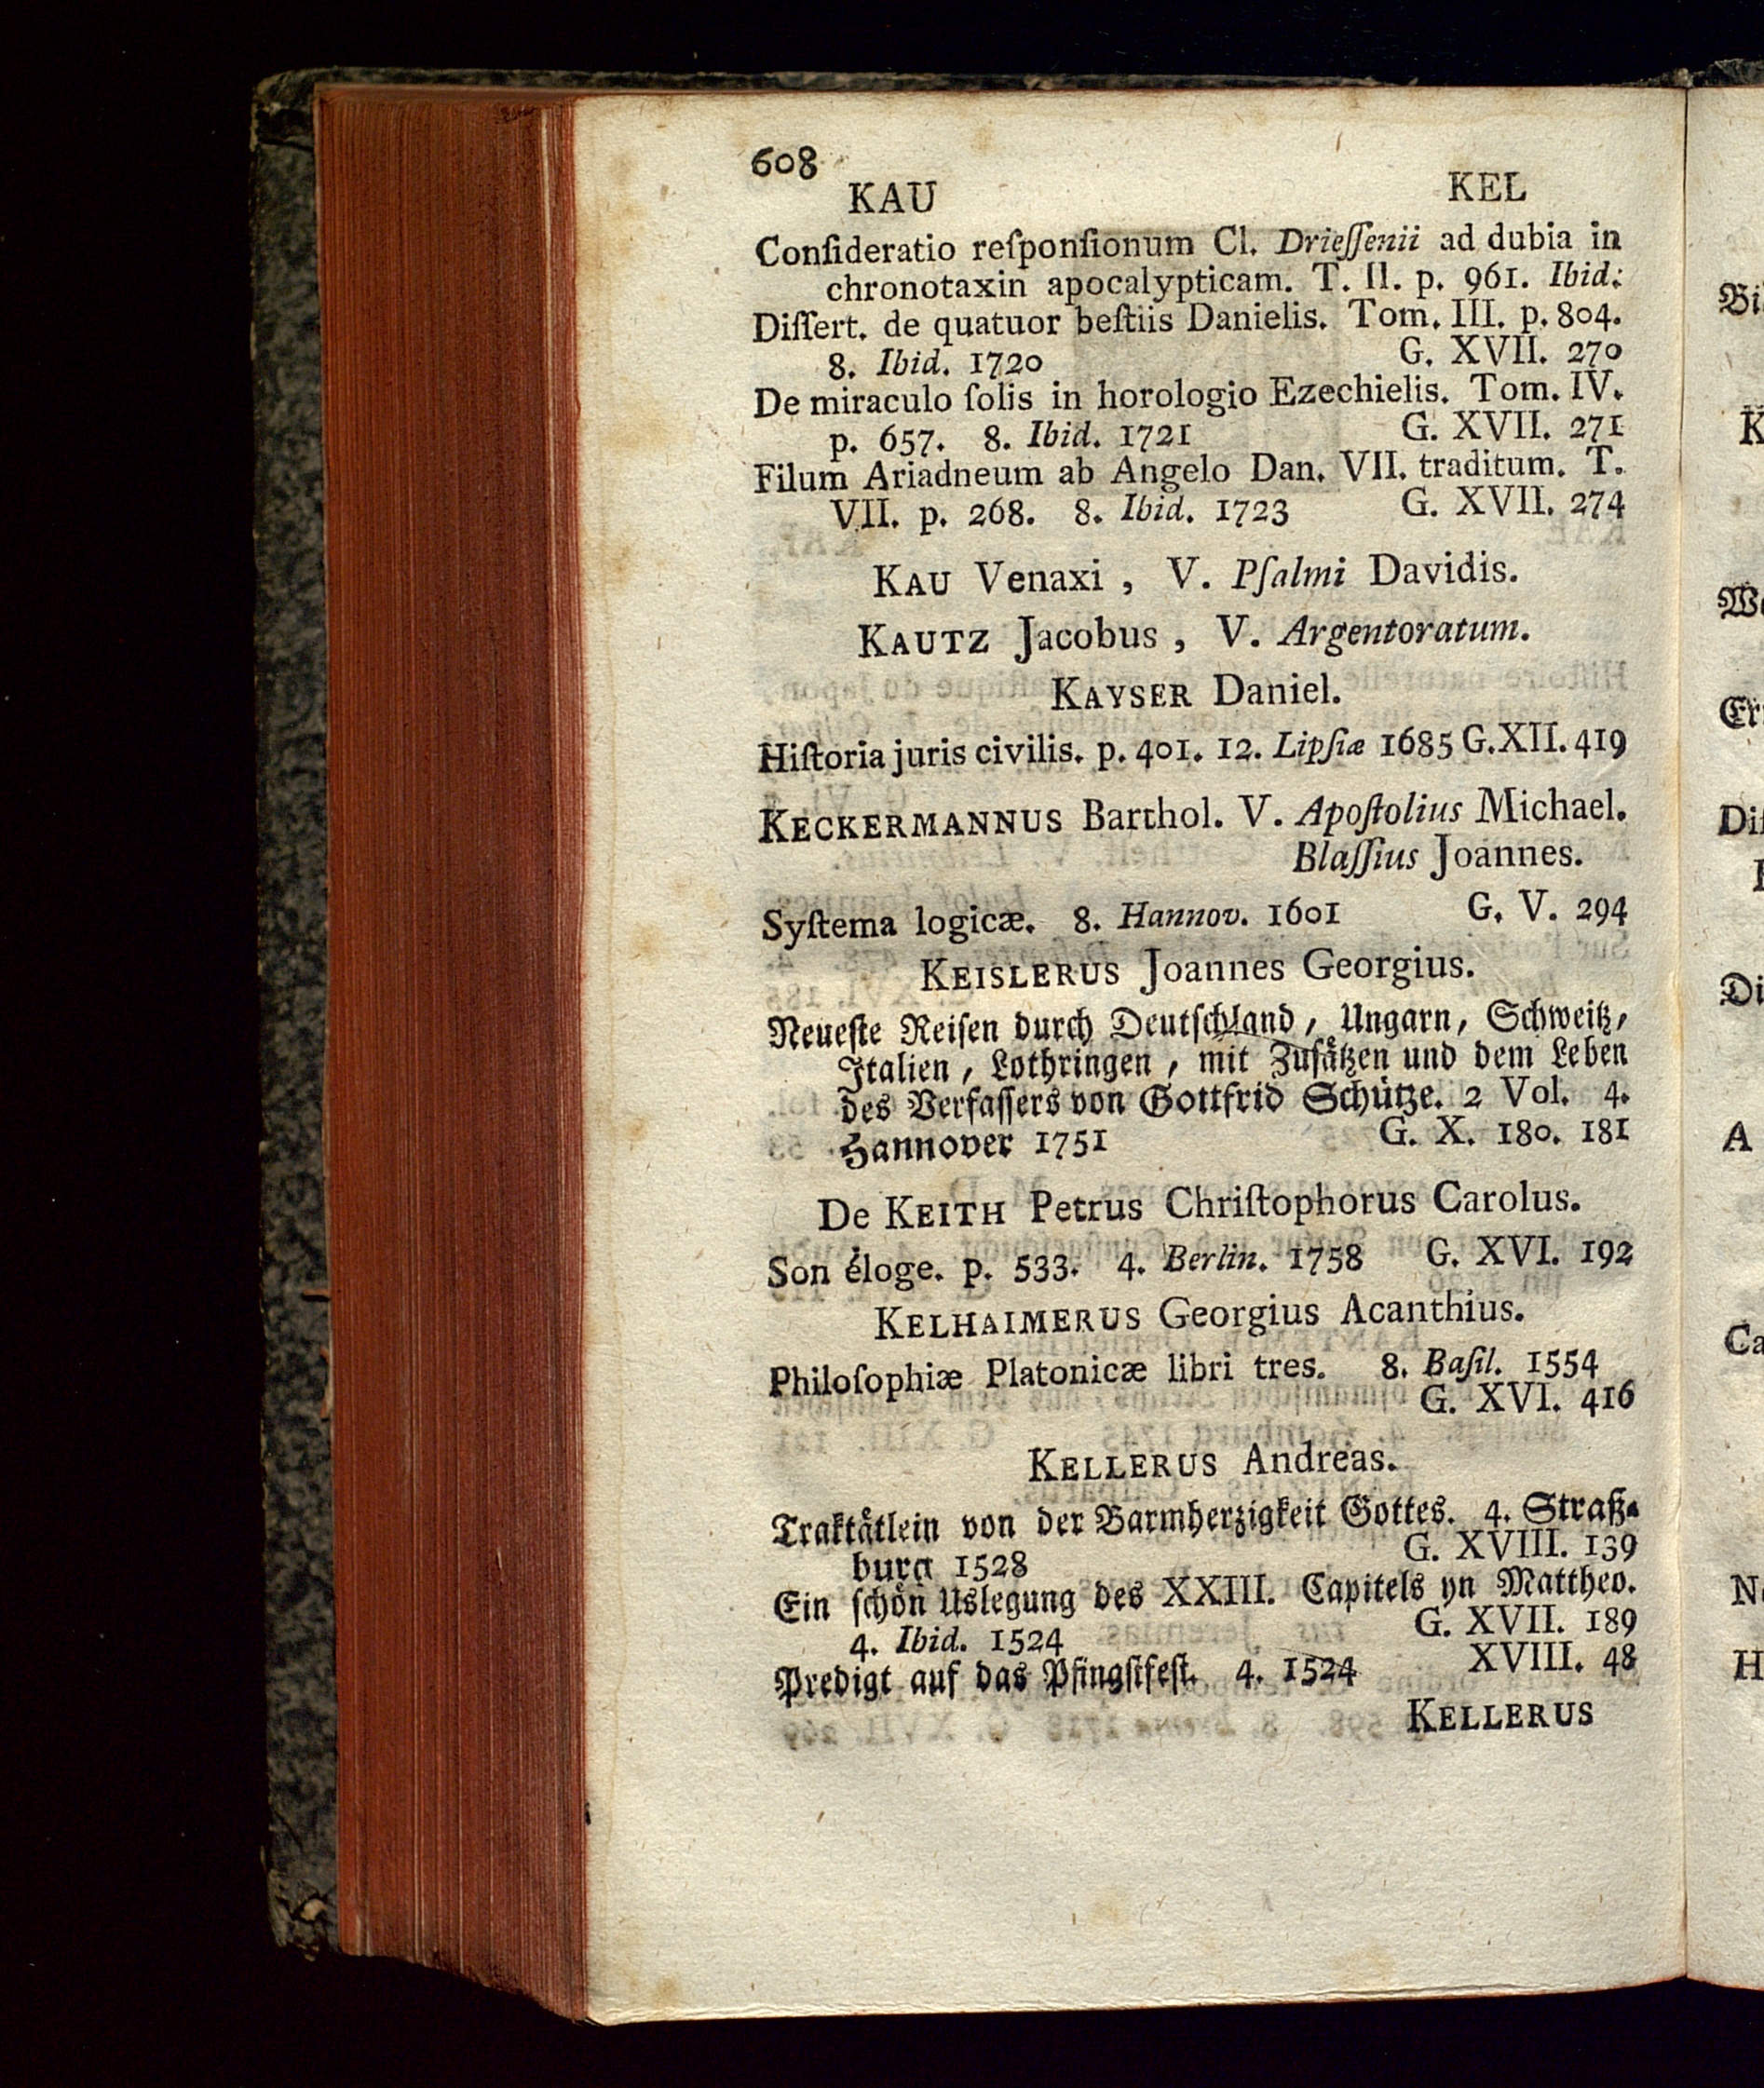 608
KAU KEL
Conſideratio reſponſionum Cl. Drieſſenii ad dubia in
chronotaxin apocalypticam. T. II. p. 961. Ibid.
Diſſert. de quatuor beſtiis Danielis. Tom. III. p. 804.
8. Ibid. 1720 G. XVII. 270
De miraculo ſolis in horologio Ezechielis. Tom. IV.
p. 657. 8. Ibid. 1721 G. XVII. 271
Filum Ariadneum ab Angelo Dan. VII. traditum. T.
VII. p. 268. 8. Ibid. 1723 G. XVII. 274
KAU Venaxi, V. Pſalmi Davidis.
KAUTZ Jacobus, V. Argentoratum.
KAYSER Daniel.
Hiſtoria juris civilis. p. 401. 12. Lipſiæ 1685 G. XII. 419
KECKERMANNUS Barthol. V. Apoſtolius Michael.
Blaſſius Joannes.
Syſtema logicæ. 8. Hannov. 1601 G. V. 294
KEISLERUS Joannes Georgius.
Neueſte Reiſen durch Deutſchland, Ungarn, Schweitz,
Italien, Lothringen, mit Zuſätzen und dem Leben
des Verfaſſers von Gottfrid Schütze. 2 Vol. 4.
Hannover 1751 G. X. 180. 181
De KEITH Petrus Chriſtophorus Carolus.
Son éloge. p. 533. 4. Berlin. 1758 G. XVI. 192
KELHAIMERUS Georgius Acanthius.
Philoſophiæ Platonicæ libri tres. 8. Baſil. 1554
G. XVI. 416
KELLERUS Andreas.
Traktätlein von der Barmherzigkeit Gottes. 4. Straß-
burg 1528 G. XVIII. 139
Ein ſchön Uslegung des XXIII. Capitels yn Mattheo.
4. Ibid. 1524 G. XVII. 189
Predigt auf das Pfingſtfeſt. 4. 1524 XVIII. 48
KELLERUS